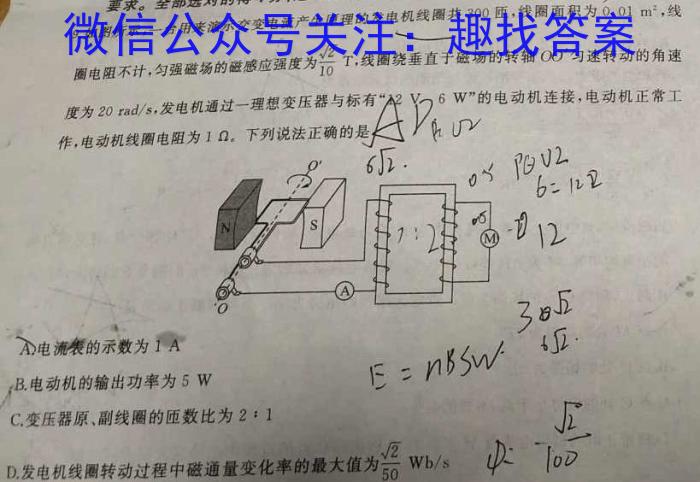 要求。全部选对的得
微信公众号关注：趣找答案
线圈共300匝,线圈面积为0.01 m²,线
圈电阻不计,匀强磁场的磁感应强度为√2/10 T,线圈绕垂直于磁场的转轴OO′匀速转动的角速
度为20 rad/s,发电机通过一理想变压器与标有“12 V 6 W”的电动机连接,电动机正常工
作,电动机线圈电阻为1 Ω。下列说法正确的是 AD
6√2.
P=UI
6=12I
0.5
O′
N
S
1:2
0.5
M
12
A
O
30√2
6√2.
E=nBSW
A.电流表的示数为1 A
B.电动机的输出功率为5 W
C.变压器原、副线圈的匝数比为2∶1
D.发电机线圈转动过程中磁通量变化率的最大值为√2/50 Wb/s
Φ= √2/100